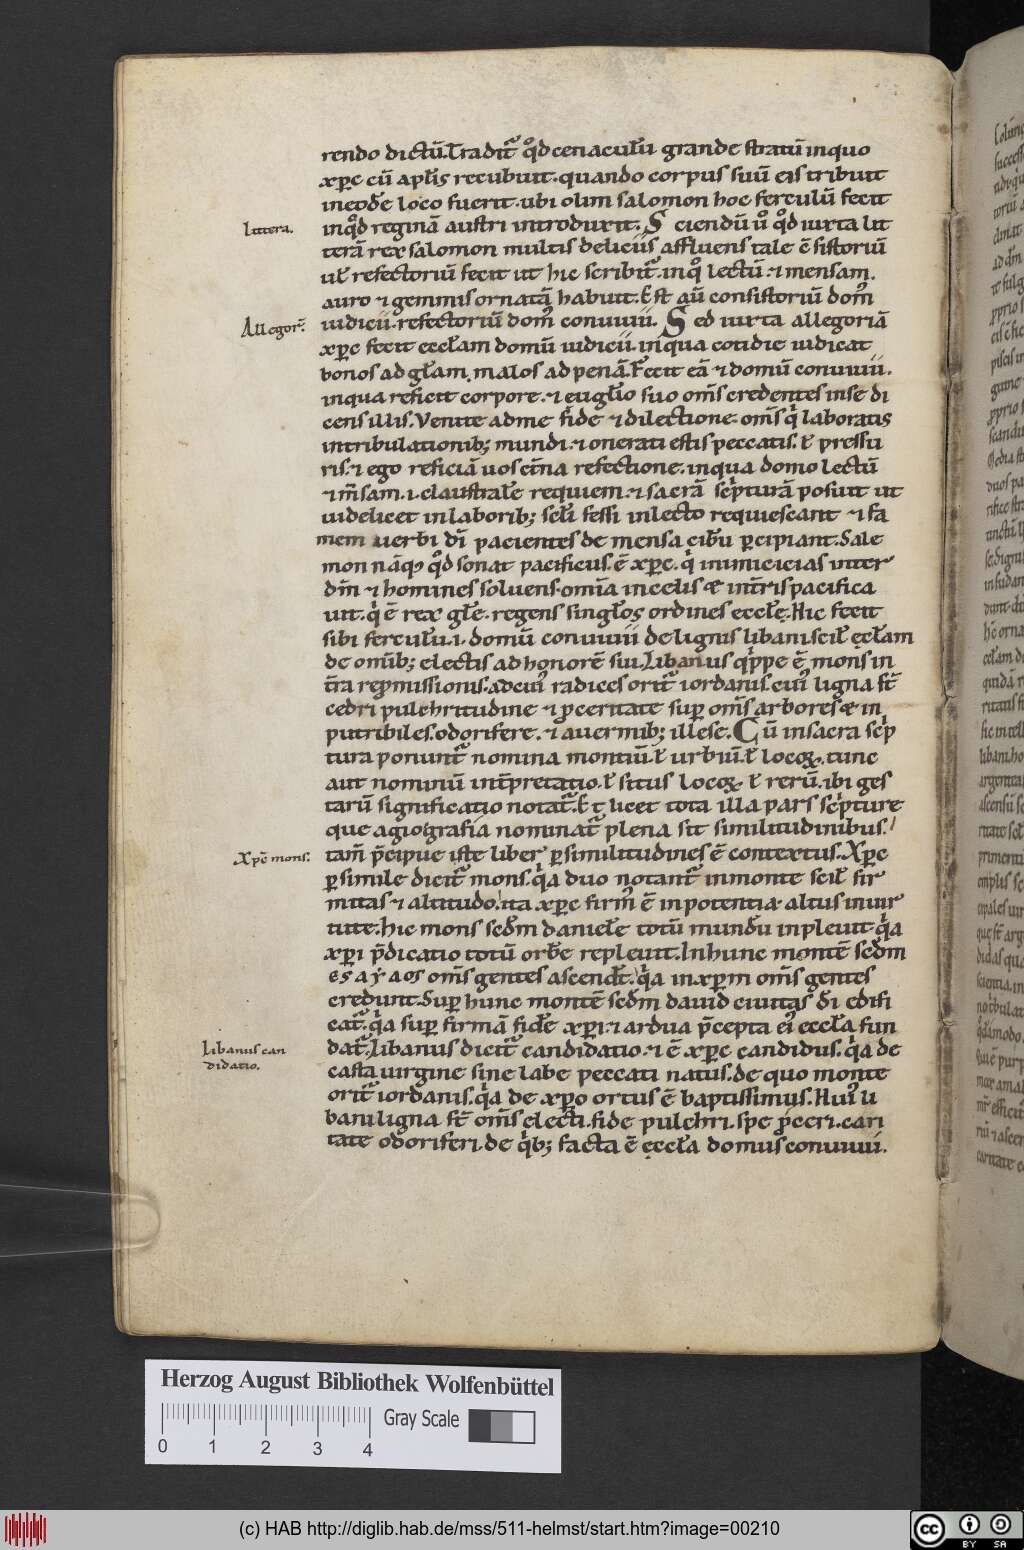 rendo dictū. Tradit᷒ qd̊ cenaculū grande stratū inquo
xp̄c cū aplis̄ recubuit. quando corpus suū eis tribuit
ineod̄e loco fuerit. ubi olim salomon hoc ferculū fecit
littera.
inqd̊ reginā austri introduxit. Sciendū ů qd̊ iuxta lit
terā rex salomon multis deliciis affluens tale ē sistoriū
ul̄ refectoriū fecit ut hic scribit᷒. inq̊ lectū ⁊ mensam.
auro ⁊ gemmis ornatā habuit. Est aū consistoriū dom᷒
Allegor᷒.
iudicii. refectoriū dom᷒ conuiuii. Sed iuxta allegoriā
xp̄c fecit eccl̄am domū iudicii. in qua cotidie iudicat
bonos ad gl̄am. malos ad penā. Fecit eā ⁊ domū conuiuii.
inqua reficit corpore. ⁊ euglio suo om̄s credentes inse di
cens illis. Venite adme fide ⁊ dilectione. om̄s q̇ laboratis
intribulationib; mundi. ⁊ onerati estis peccatis. ł pressu
ris. ⁊ ego reficiā uos et̄na refectione. inqua domo lectū
⁊ m̄sam. i. claustral̄e requiem. ⁊ sacrā sc̄pturā posuit ut
uidelicet inlaborib; scl̄i fessi inlecto requiescant ⁊ fa
mem uerbi dī pacientes de mensa cibū ꝑcipiant. Sale
mon nāq; qd̊ sonat pacificus. ē xp̄c. q̇ inimicicias inter
dm̄ ⁊ homines soluens. omīa incelis & int̄ris pacifica
uit. q̇ ē rex gl̄e. regens singl̄os ordines eccl̄ę. Hic fecit
sibi ferculū .i. domū conuiuii de lignis libani scil̄ ęcl̄am
de omīb; electis ad honorē sui. Libanus q̇ppe ē mons in
t̄ra repromissionis. adcui᷒ radices orit᷒ iordanis. cui᷒ ligna st̄
cedri pulchritudine ⁊ proceritate suꝑ om̄s arbores & in
putribiles. odorifere. ⁊ a uermib; illese. Cū insacra scp̄
tura ponunt᷒ nomina montiū. ł urbiū. ł locoꝝ. tunc
aut nominū int̄pretatio. ł situs locoꝝ. ł rerū. ibi ges
tarū significatio notat᷒. Et licet tota illa pars scp̄ture
que agiografia nominat᷒ plena sit similitudinibus.
xp̄c mons.
tam̄ p̄cipue iste liber ꝑ similitudines ē contextus. Xp̄c
ꝑ simile dicit᷒ mons. q̇a duo notant᷒ inmonte scil̄ fir
mitas ⁊ altitudo. ita xp̄c firm᷒ ē inpotentia. altus inuir
tute. hic mons scd̄m daniel̄e totū mundū inpleuit. q̇a
xp̄i p̄dicatio totū orbē repleuit. In hunc montē scd̄m
esayaos om̄s gentes ascendt̄. q̇a inxp̄m om̄s gentes
credunt. Suꝑ hunc montē scd̄m dauid ciuitas dī edifi
cat᷒. q̇a suꝑ firmā fidē xp̄i. ⁊ ardua p̄cepta ei᷒ eccl̄a fun
Libanus can
didatio.
dat᷒. Libanus dicit᷒ candidatio. ⁊ ē xp̄c candidus. q̇a de
casta uirgine sine labe peccati natus. de quo monte
orit᷒ iordanis. q̇a de xp̄o ortus ē baptissimus. Hui᷒ li
bani ligna st̄ om̄s electi. fide pulchri. spe p̊ceri. cari
tate odoriferi. de q̇b; facta ē ęccl̄a domus conuiuii.
Herzog August Bibliothek Wolfenbüttel
Gray Scale
0 1 2 3 4
(c) HAB http://diglib.hab.de/mss/511-helmst/start.htm?image=00210
cc BY SA